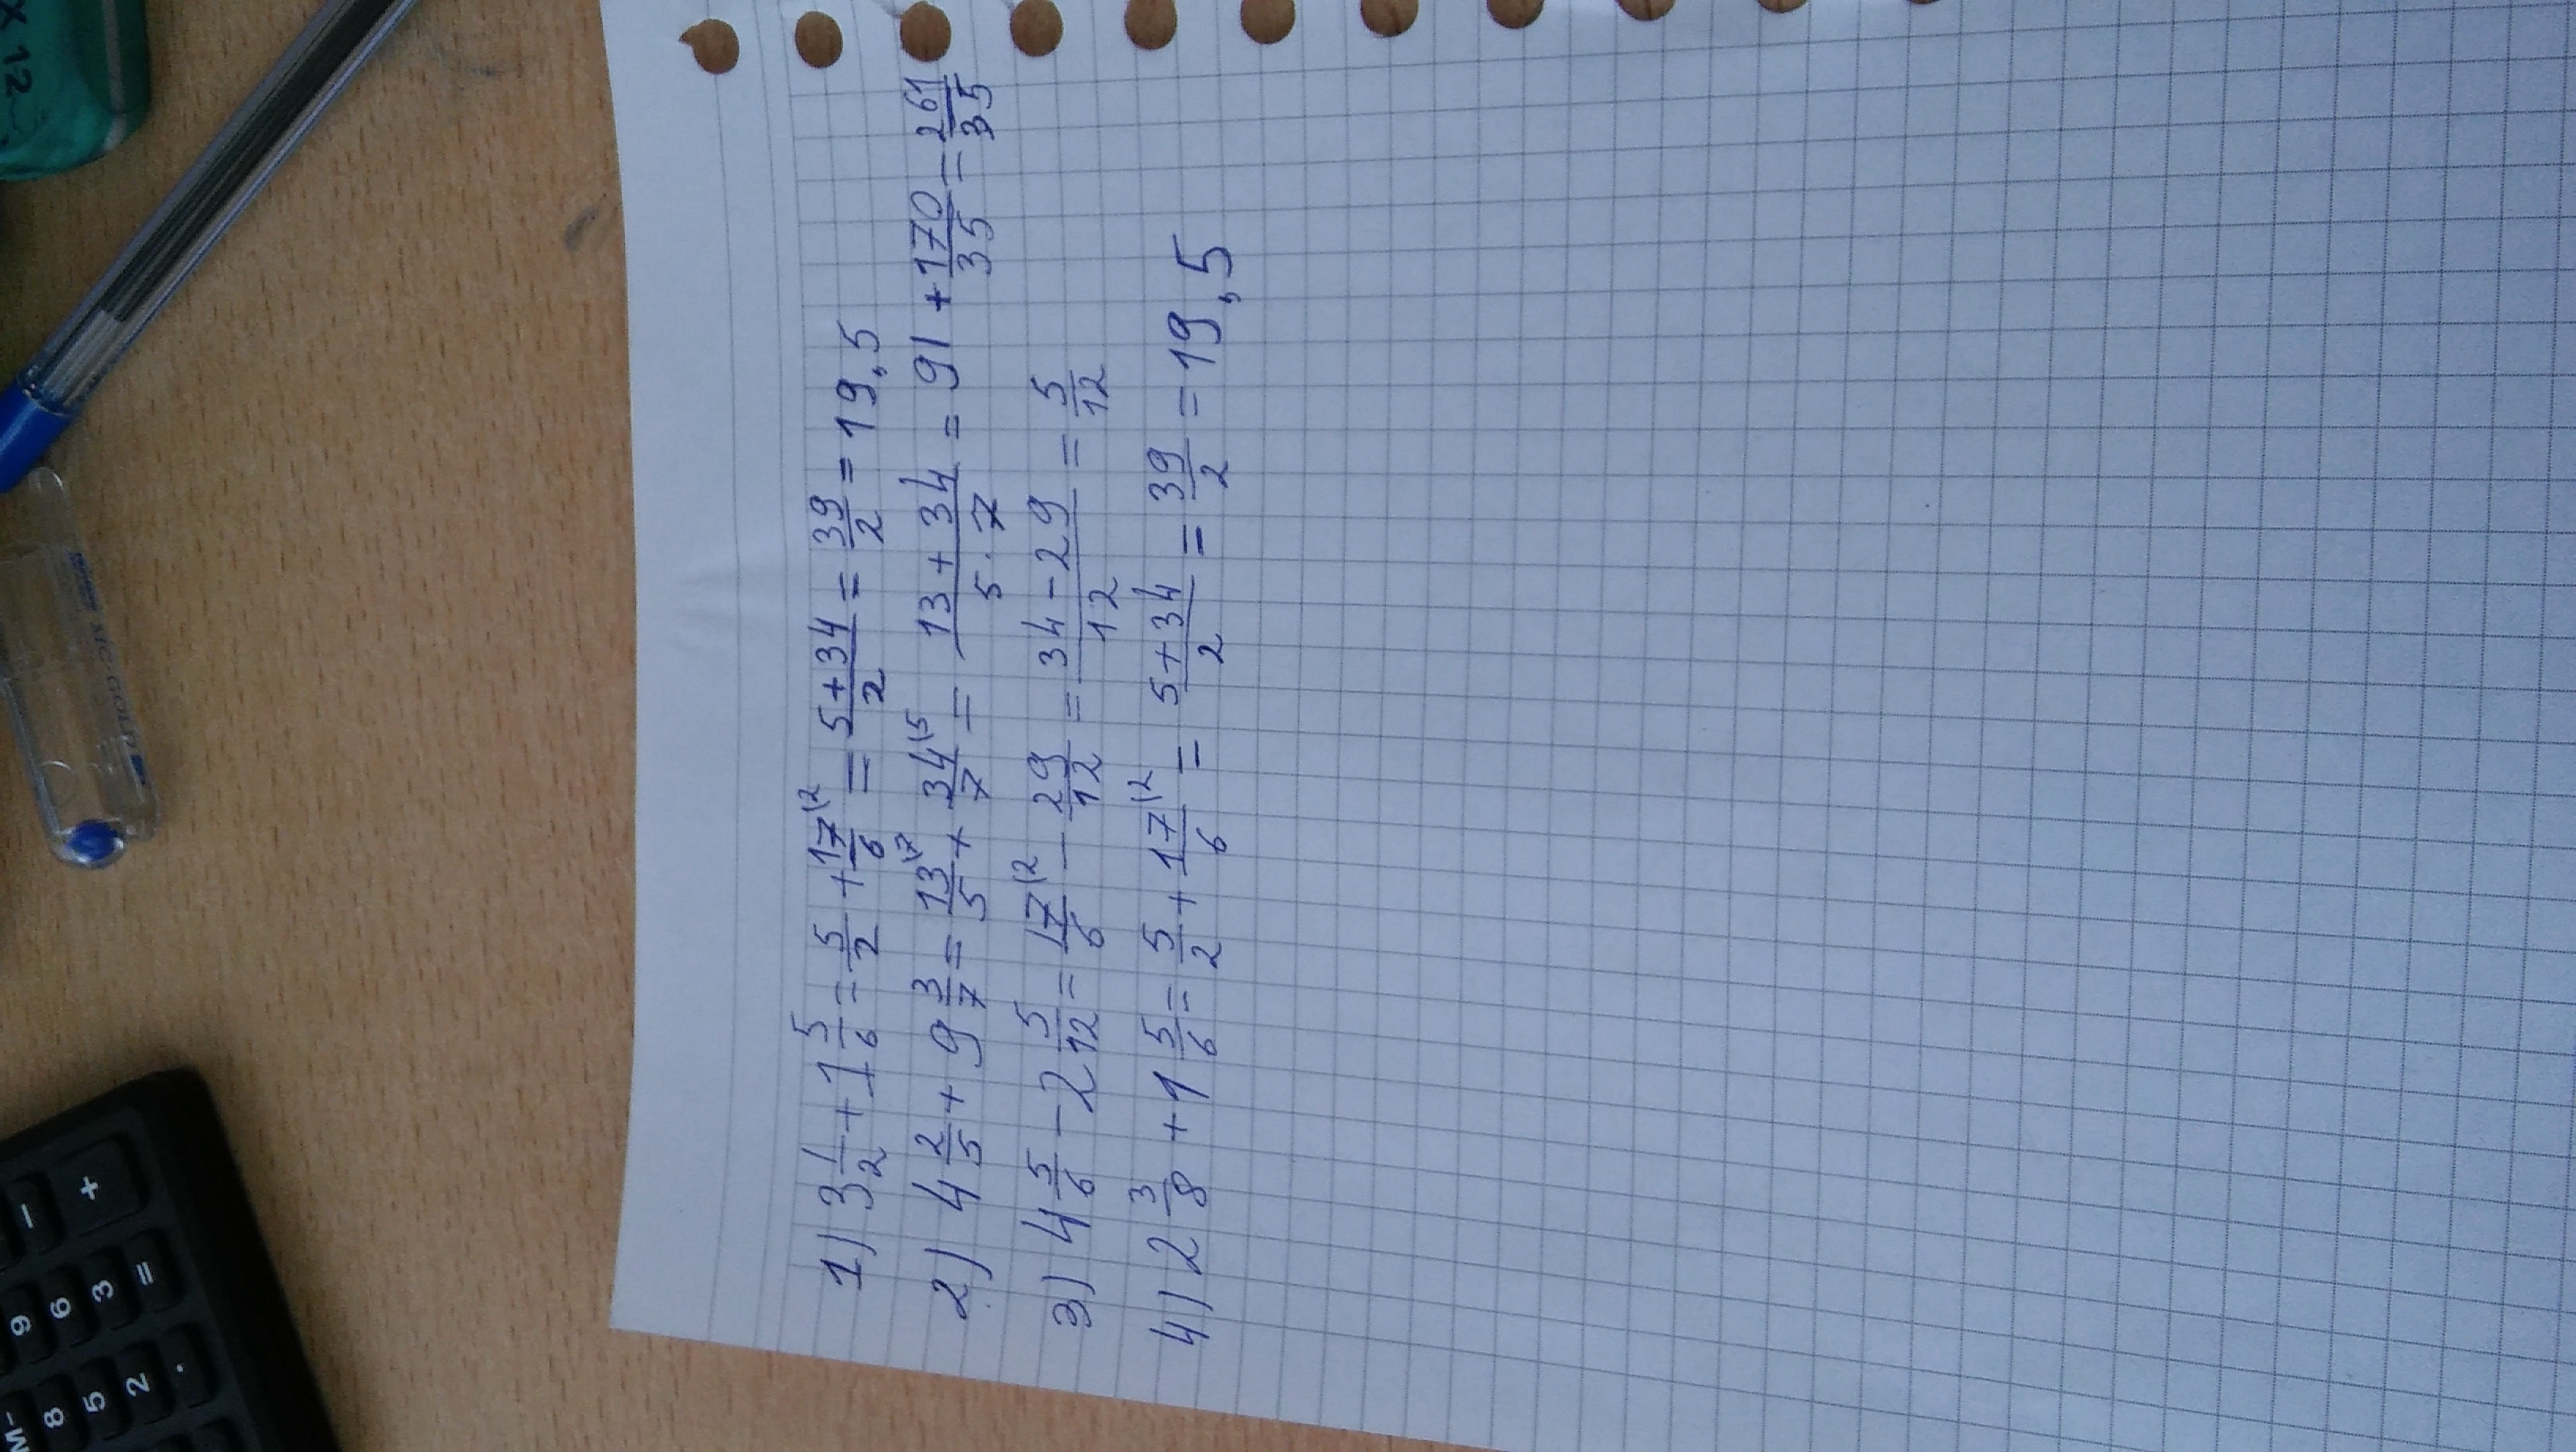 1) 3 1/2 + 1 5/6 = 5/2 + 17\2/6 = 5+34/2 = 39/2 = 19,5
2) 4 2/5 + 9 3/7 = 13\7/5 + 34\5/7 = 13+34/5·7 = 91 + 170/35 = 261/35
3) 4 5/6 - 2 5/12 = 17\2/6 - 29/12 = 34-29/12 = 5/12
4) 2 3/8 + 1 5/6 = 5/2 + 17\2/6 = 5+34/2 = 39/2 = 19,5
X 12
M-
- +
9 6 3 =
8 5 2 .